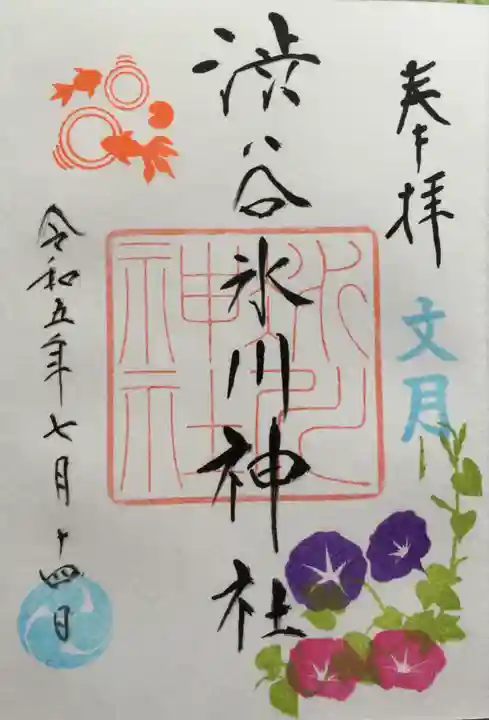 奉拝
文月
渋谷氷川神社
氷川
神社
令和五年七月十四日